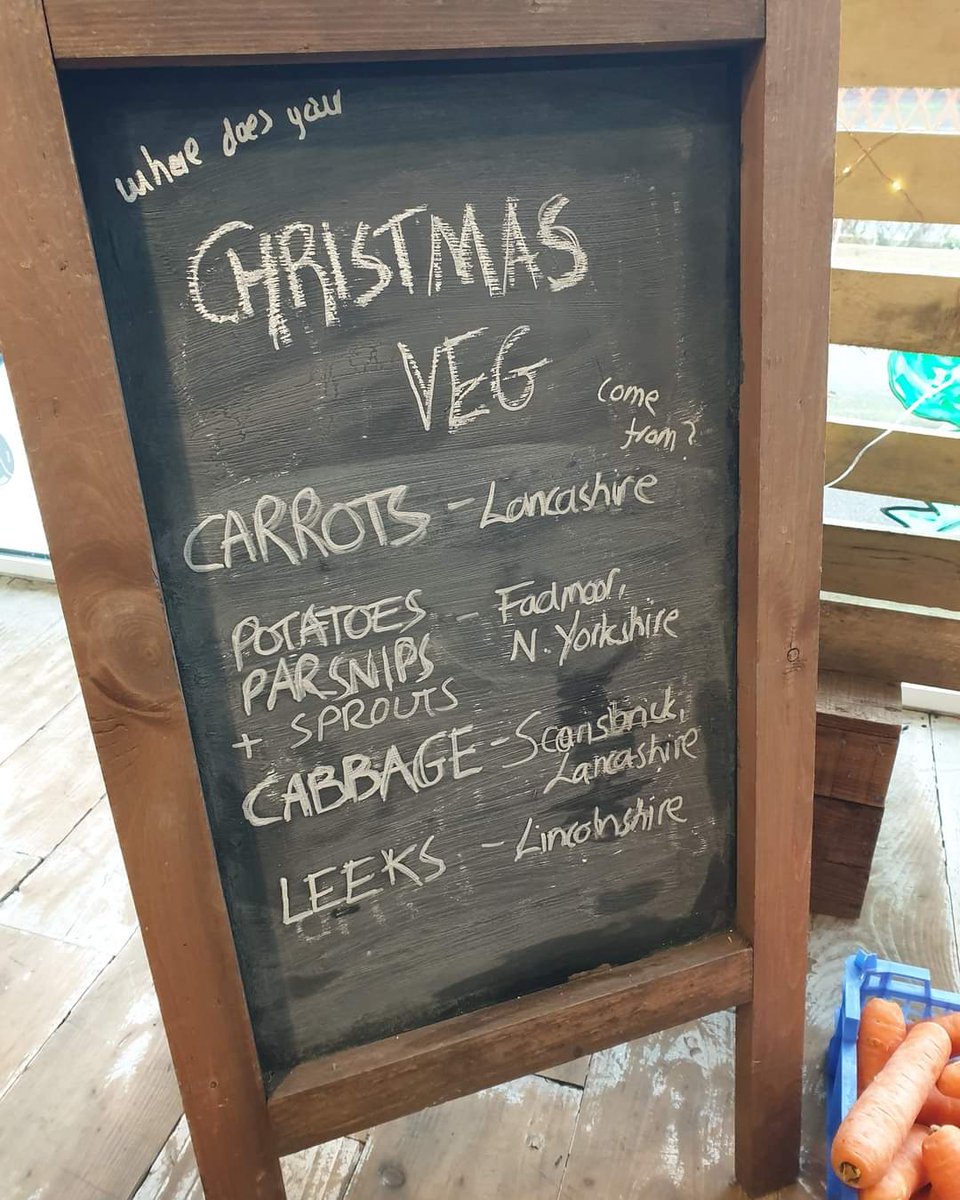 where does your
CHRISTMAS
VEG
come
from?
CARROTS - Lancashire
POTATOES - Fadmoor,
PARSNIPS N. Yorkshire
+ SPROUTS
CABBAGE - Scarisbrick,
Lancashire
LEEKS - Lincolnshire